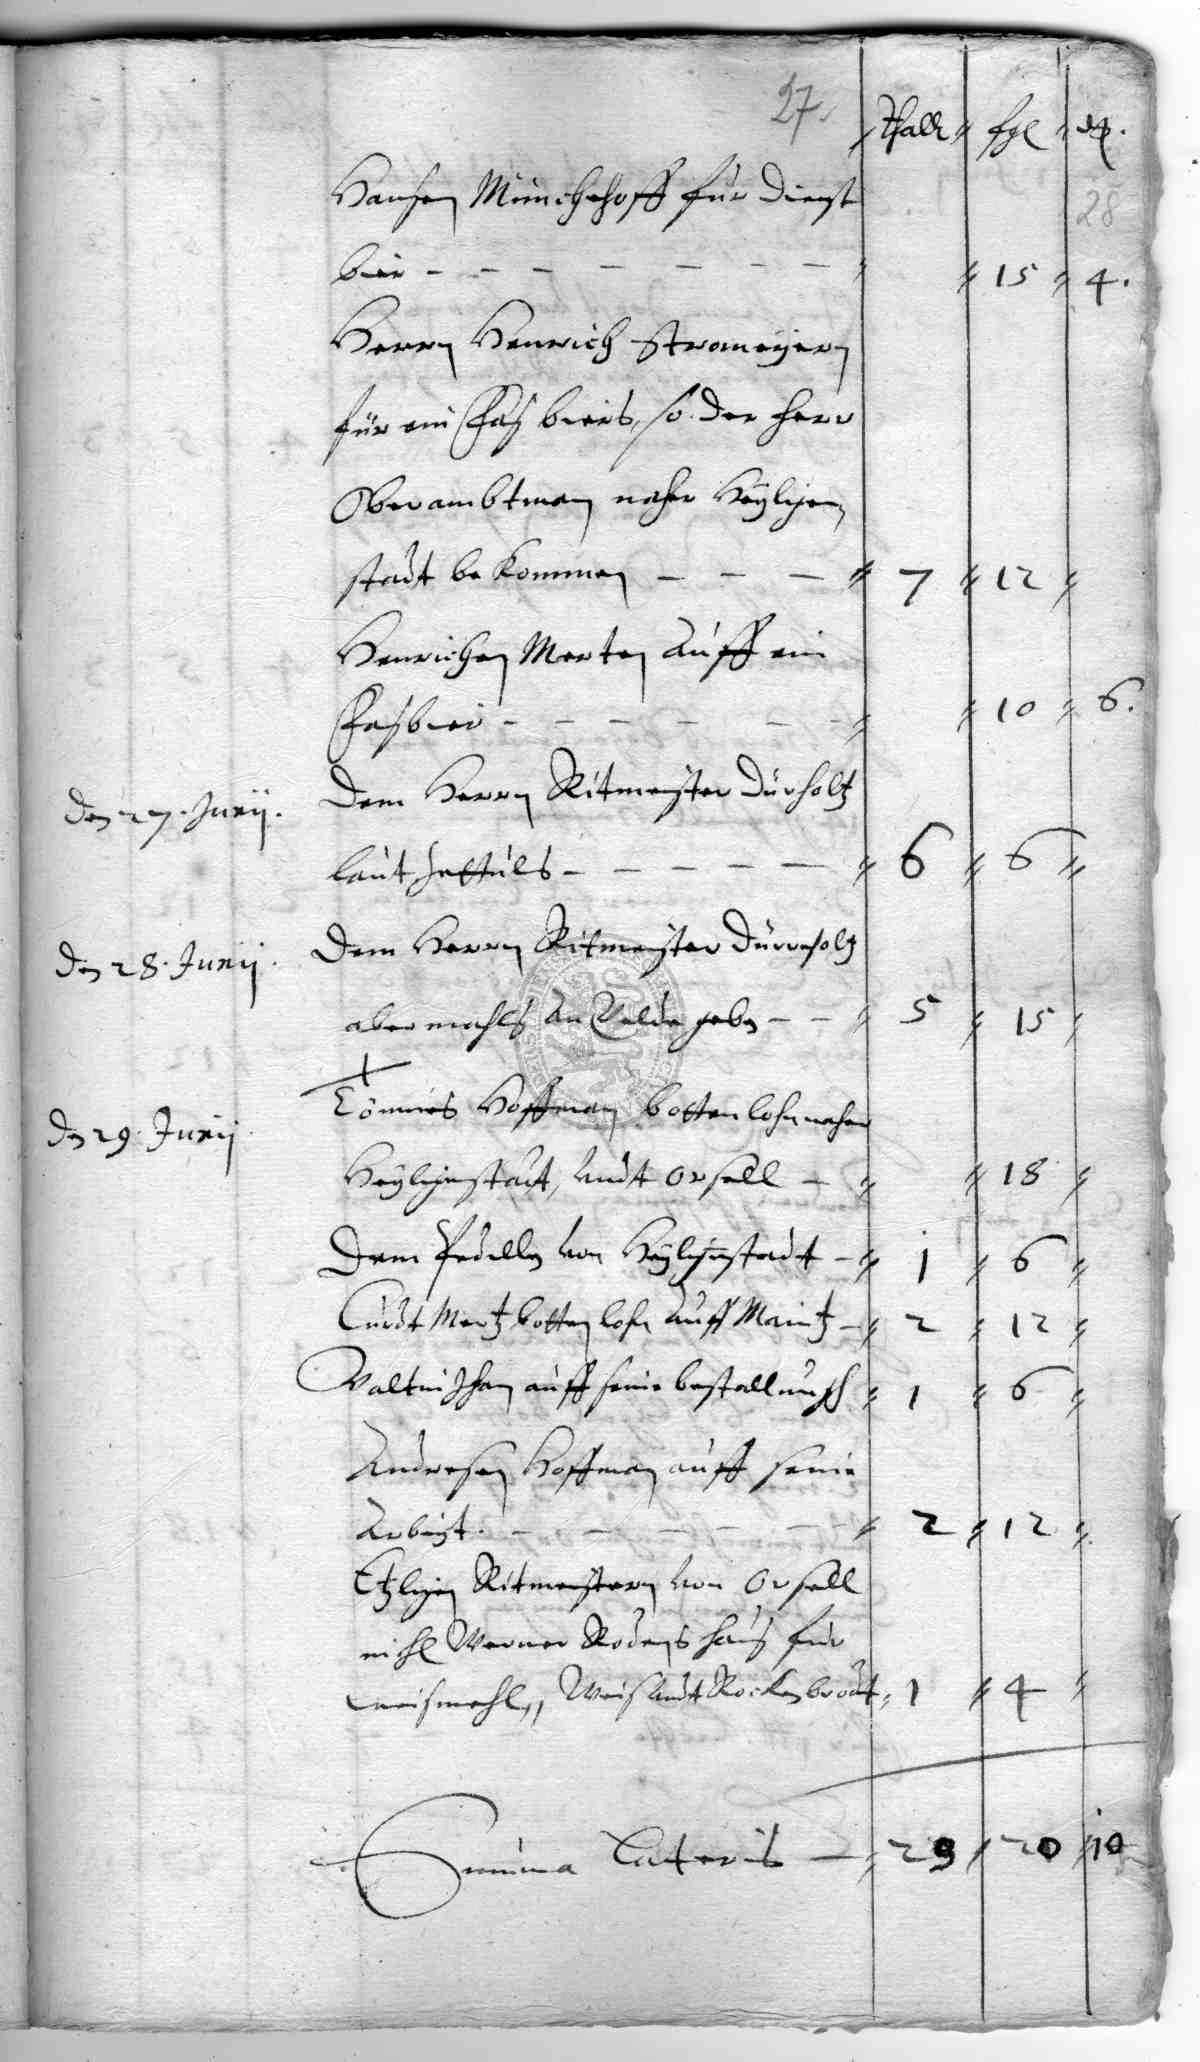 27.
Thall fgl ₰.
28
Hansen Münchehoff für dienst
bier - - - - - - - 15 4.
Herrn Henrich Stromeyern
für ein Fas biers, so der Herr
Oberambtman naher Heyligen
stadt bekommen - - - 7 12
Henrichen Merten auff ein
Fasbier - - - - - - 10 6.
den 27. Junij. Dem Herrn Ritmeister Dürholtz
laut Zettuls - - - - - 6 6
den 28. Junij. Dem Herrn Ritmeister Dürreholtz
abermahls an gelde geben - - 5 15
den 29. Junij Tönnies Hoffman bottenlohn naher
Heyligenstadt, undt Orsell - 18
Dem Pedellen von Heyligenstadt - 1 6
Curdt Mertz bottenlohn auff Maintz - 2 12
Valtin auff seine bestallungh 1 6
Andresen Hoffman auff seine
Arbeyt. - - - - - - 2 12
Etzligen Ritmeistern von Orsell
Werner Rodens haus für
weismehl, Weis undt Rockenbrodt 1 4
Summa Lateris - 29 20 10